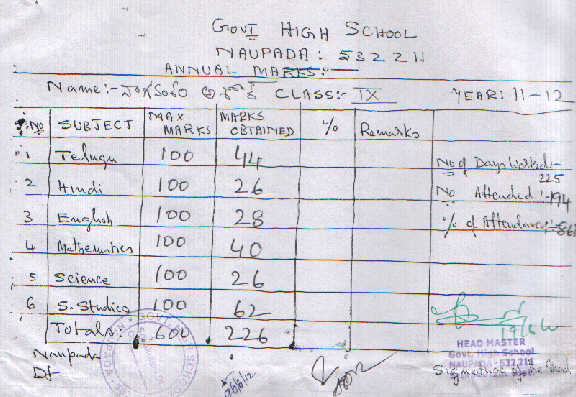 GOVT HIGH SCHOOL
NAUPADA: 532211
ANNUAL MARKS:
Name:- CLASS:- IX YEAR: 11-12
S.No SUBJECT MAX MARKS MARKS OBTAINED % Remarks
1 Telugu 100 44 No of Days Worked:- 225
2 Hindi 100 26 No Attended:-194
3 English 100 28 % of Attendance:-86
4 Mathematics 100 40
5 Science 100 26
6 S.Studies 100 62
Totals: 600 226
HEAD MASTER
Govt. High School
NAUPADA - 532 211
Naupada
Dt-
Signature of the